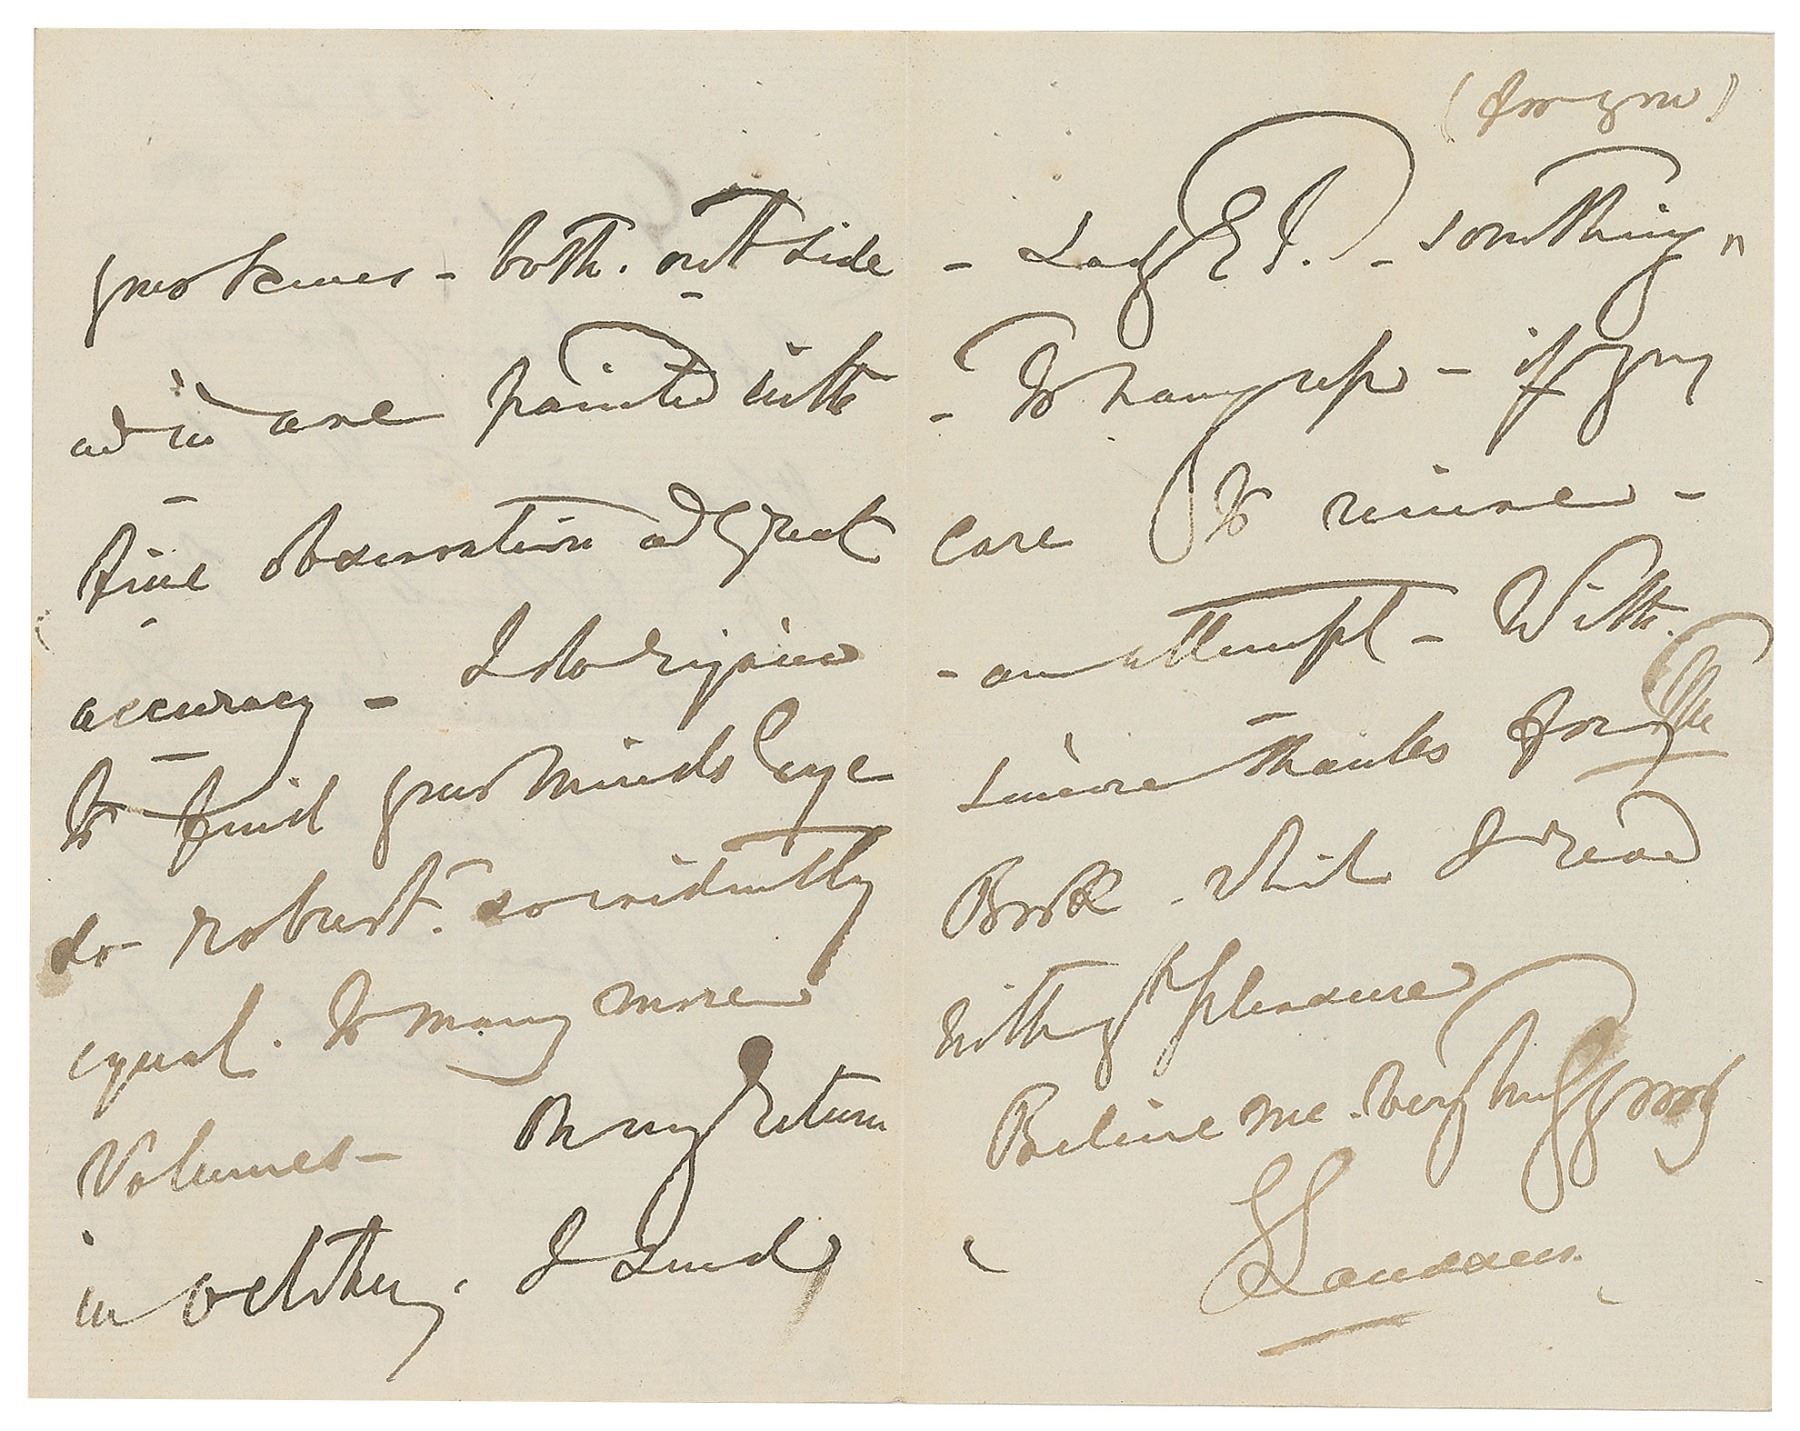 your scenes - both. out side
ad in are painted with
fine observation ad great
accuracy - I also rejoice
to find your minds Eye
so robust. so evidently
equal. to many more
Volumes - On my return
in I send
(for you)
- Lady E P. - something
- To hang up - if you
care to -
- an attempt - With
sincere thanks for the
Book - which I read
with gt pleasure
Believe me. very truly yours
E Landseer.